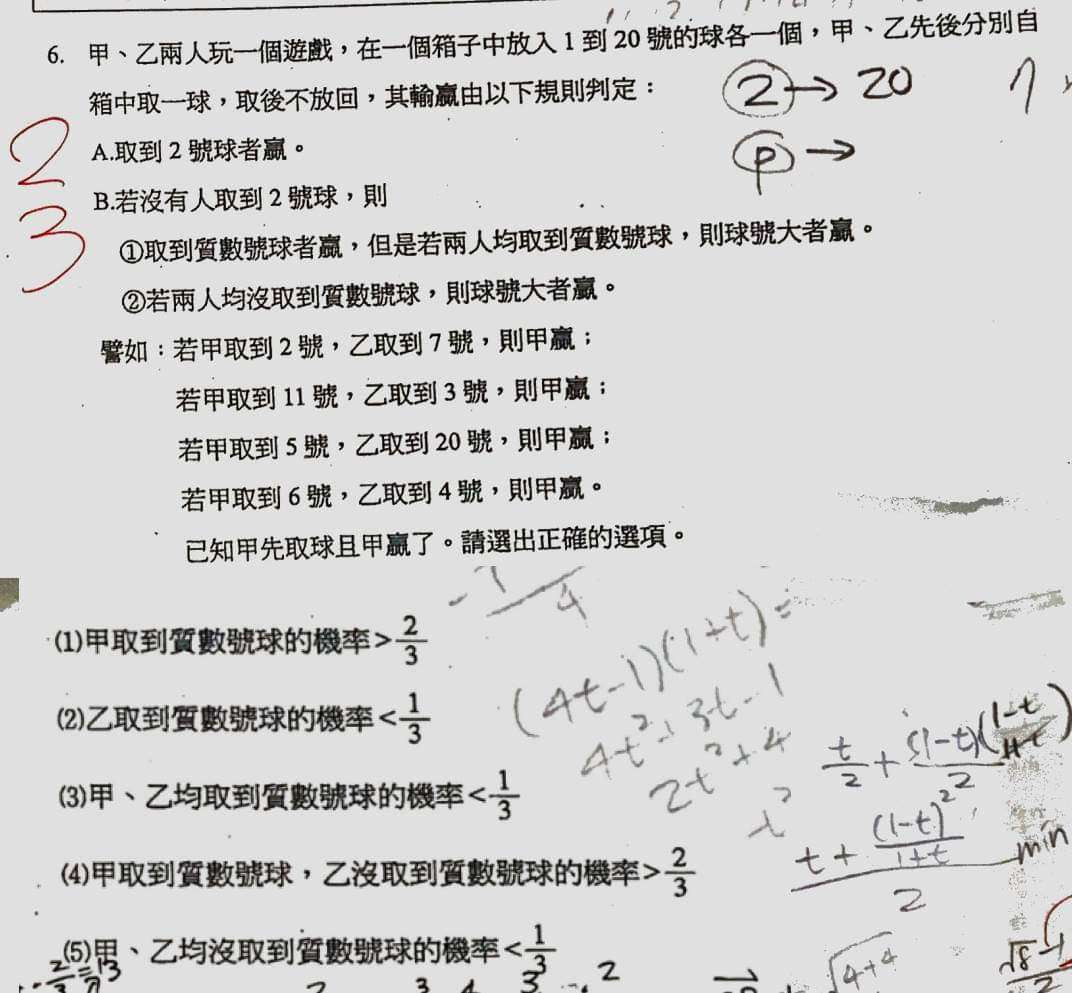 6. 甲、乙兩人玩一個遊戲，在一個箱子中放入 1 到 20 號的球各一個，甲、乙先後分別自
箱中取一球，取後不放回，其輸贏由以下規則判定：
② → 20
A.取到 2 號球者贏。
Ⓟ →
2
B.若沒有人取到 2 號球，則
3
①取到質數號球者贏，但是若兩人均取到質數號球，則球號大者贏。
②若兩人均沒取到質數號球，則球號大者贏。
譬如：若甲取到 2 號，乙取到 7 號，則甲贏；
若甲取到 11 號，乙取到 3 號，則甲贏；
若甲取到 5 號，乙取到 20 號，則甲贏；
若甲取到 6 號，乙取到 4 號，則甲贏。
已知甲先取球且甲贏了。請選出正確的選項。
(1)甲取到質數號球的機率>2/3
(4t-1)(1+t)=
(2)乙取到質數號球的機率<1/3
4t²+3t-1
2t²+4
t/2+
(3)甲、乙均取到質數號球的機率<1/3
t+(1-t)²/1+t
2
min
(4)甲取到質數號球，乙沒取到質數號球的機率>2/3
(5)甲、乙均沒取到質數號球的機率<1/3
√4+4
√8-1
2